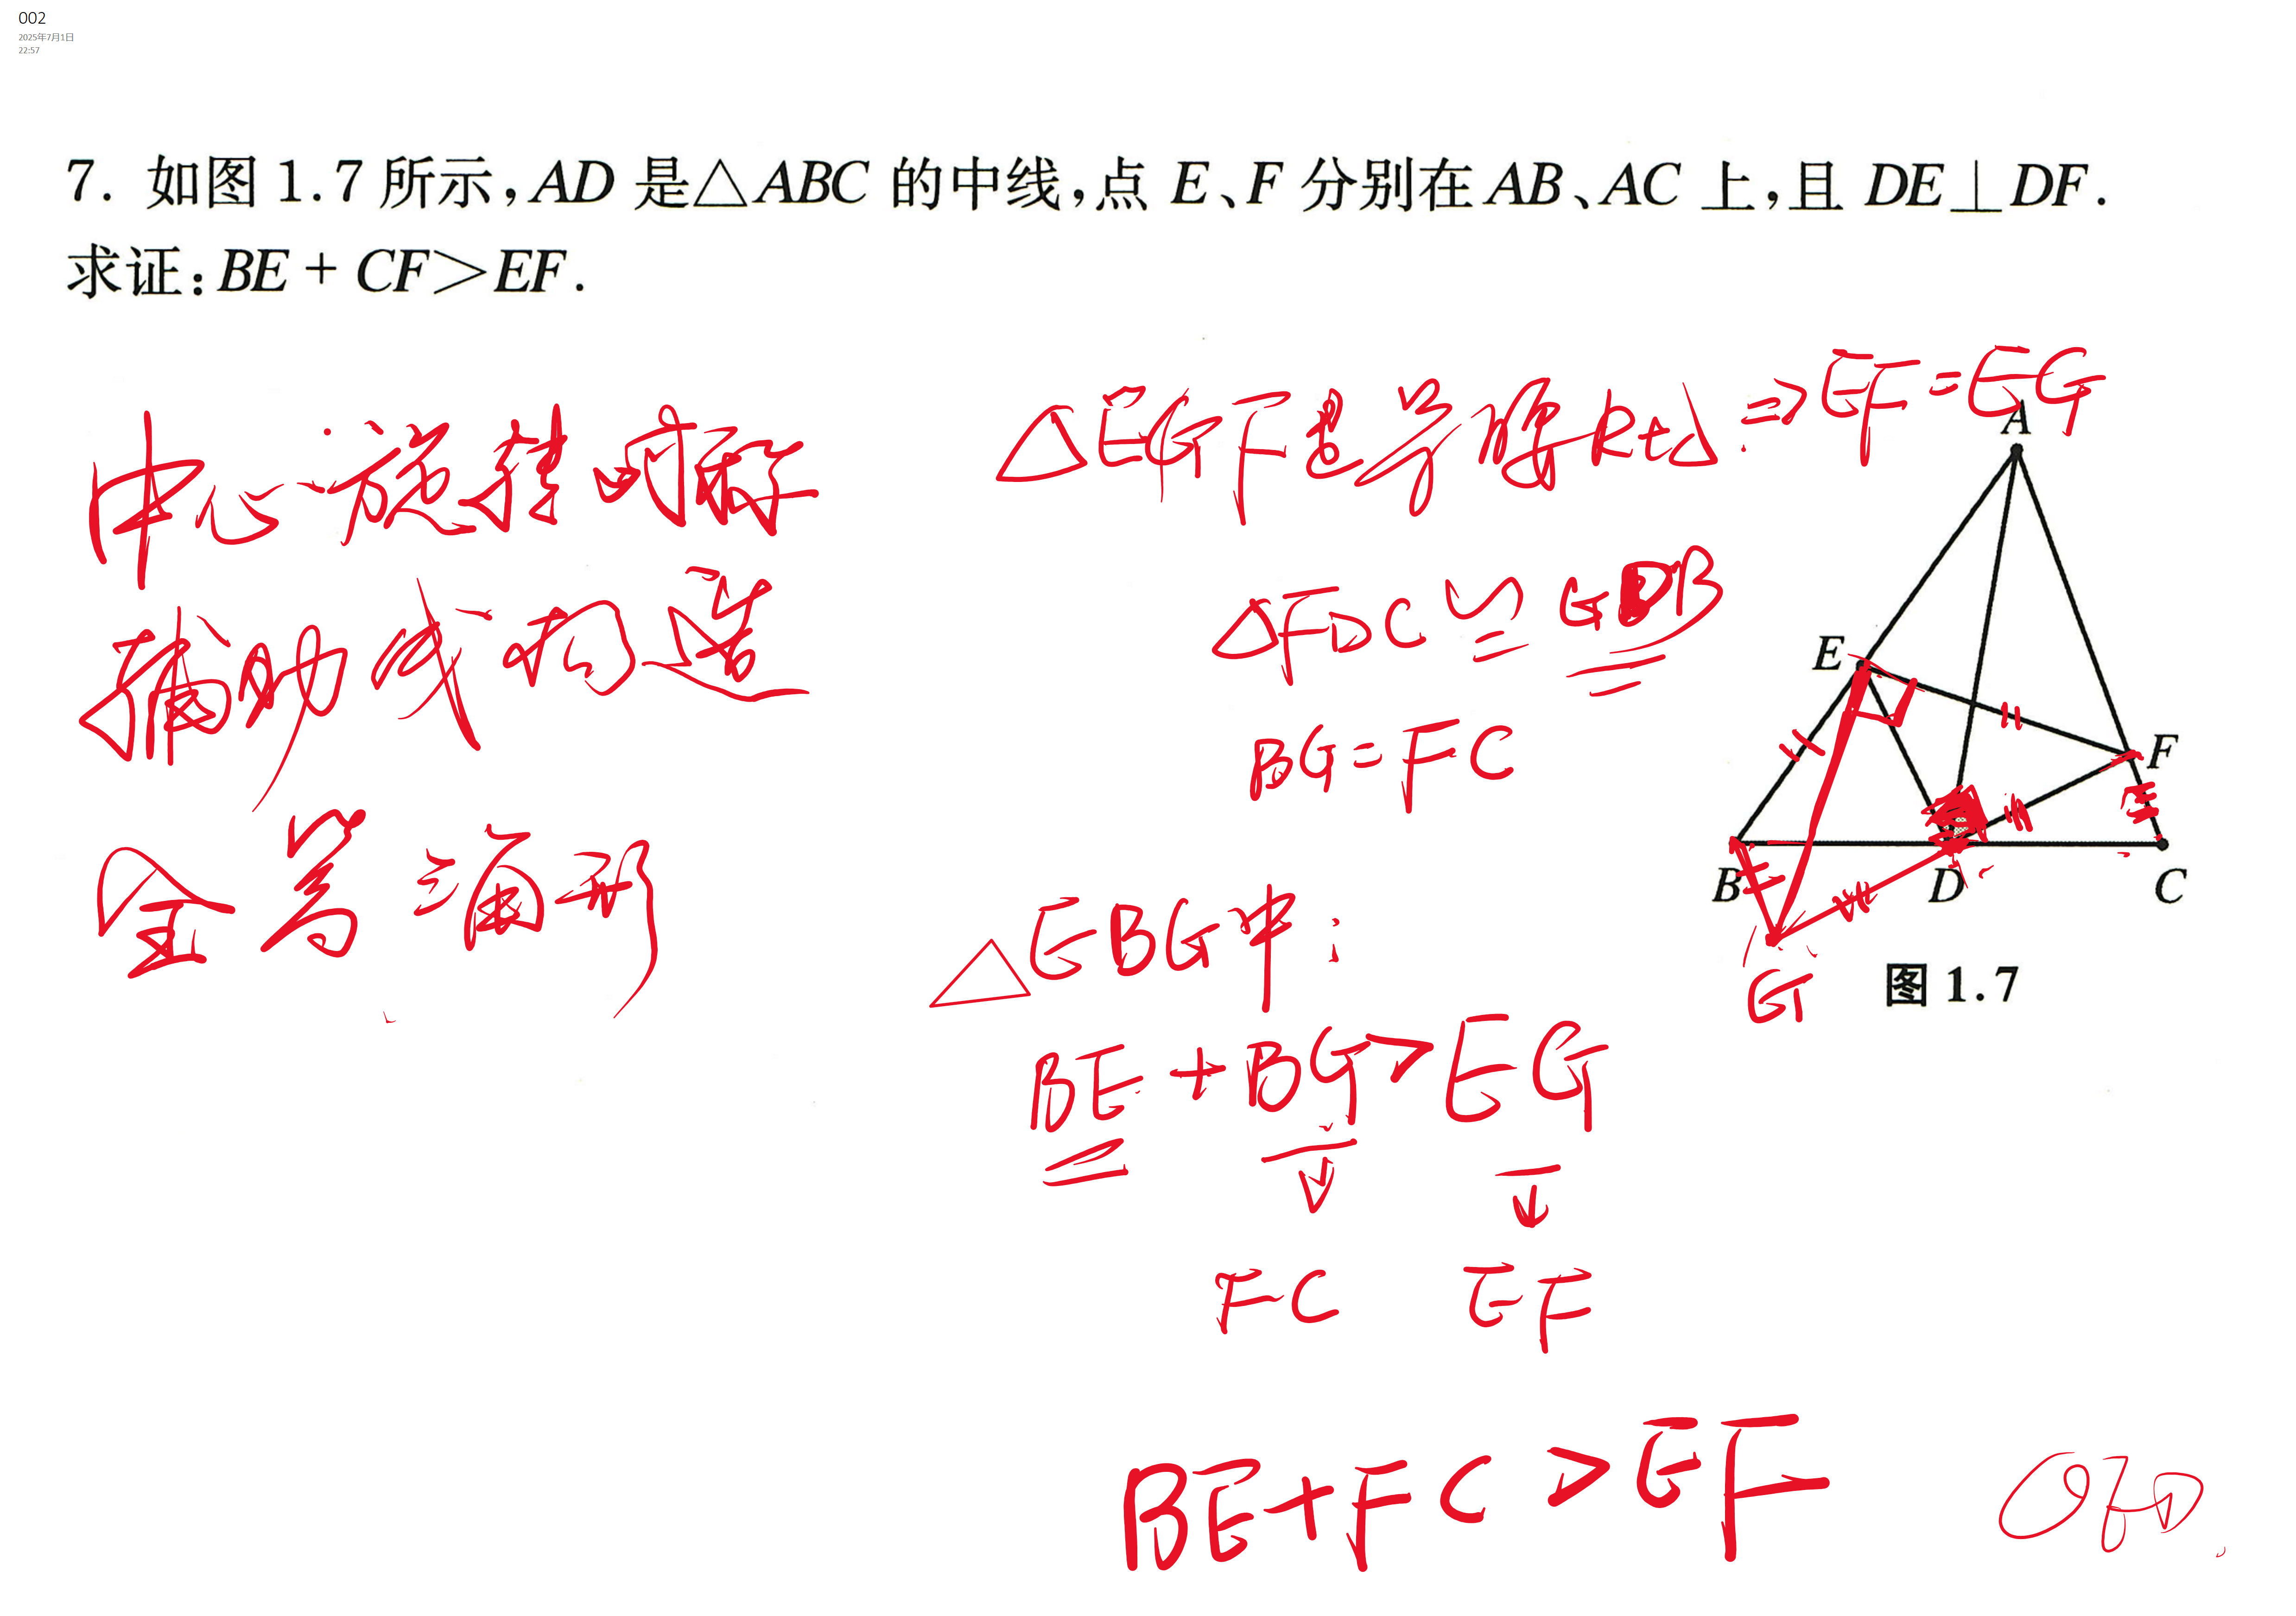 002
2025年7月1日
22:57
7. 如图1.7所示,AD是△ABC的中线,点E、F分别在AB、AC上,且DE⊥DF.
求证:BE+CF>EF.
中心旋转对称
辅助线构造
全等三角形
△EGF是等腰Rt△ ⇒ EF=EG
△FDC≌GDB
BG=FC
△EBG中:
BE+BG>EG
FC EF
BE+FC>EF
A
E
F
B
D
C
G
图1.7